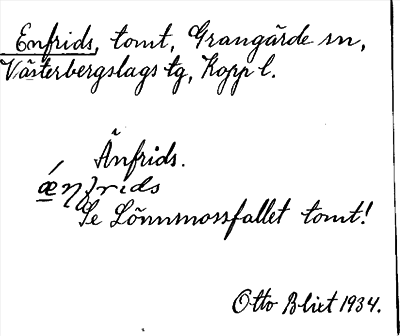 Enfrids, tomt, Grangärde sn,
Västerbergslags tg, Kopp l.
Änfrids.
ǽnfrids
Se Lönnmossfallet tomt!
Otto Blixt 1934.